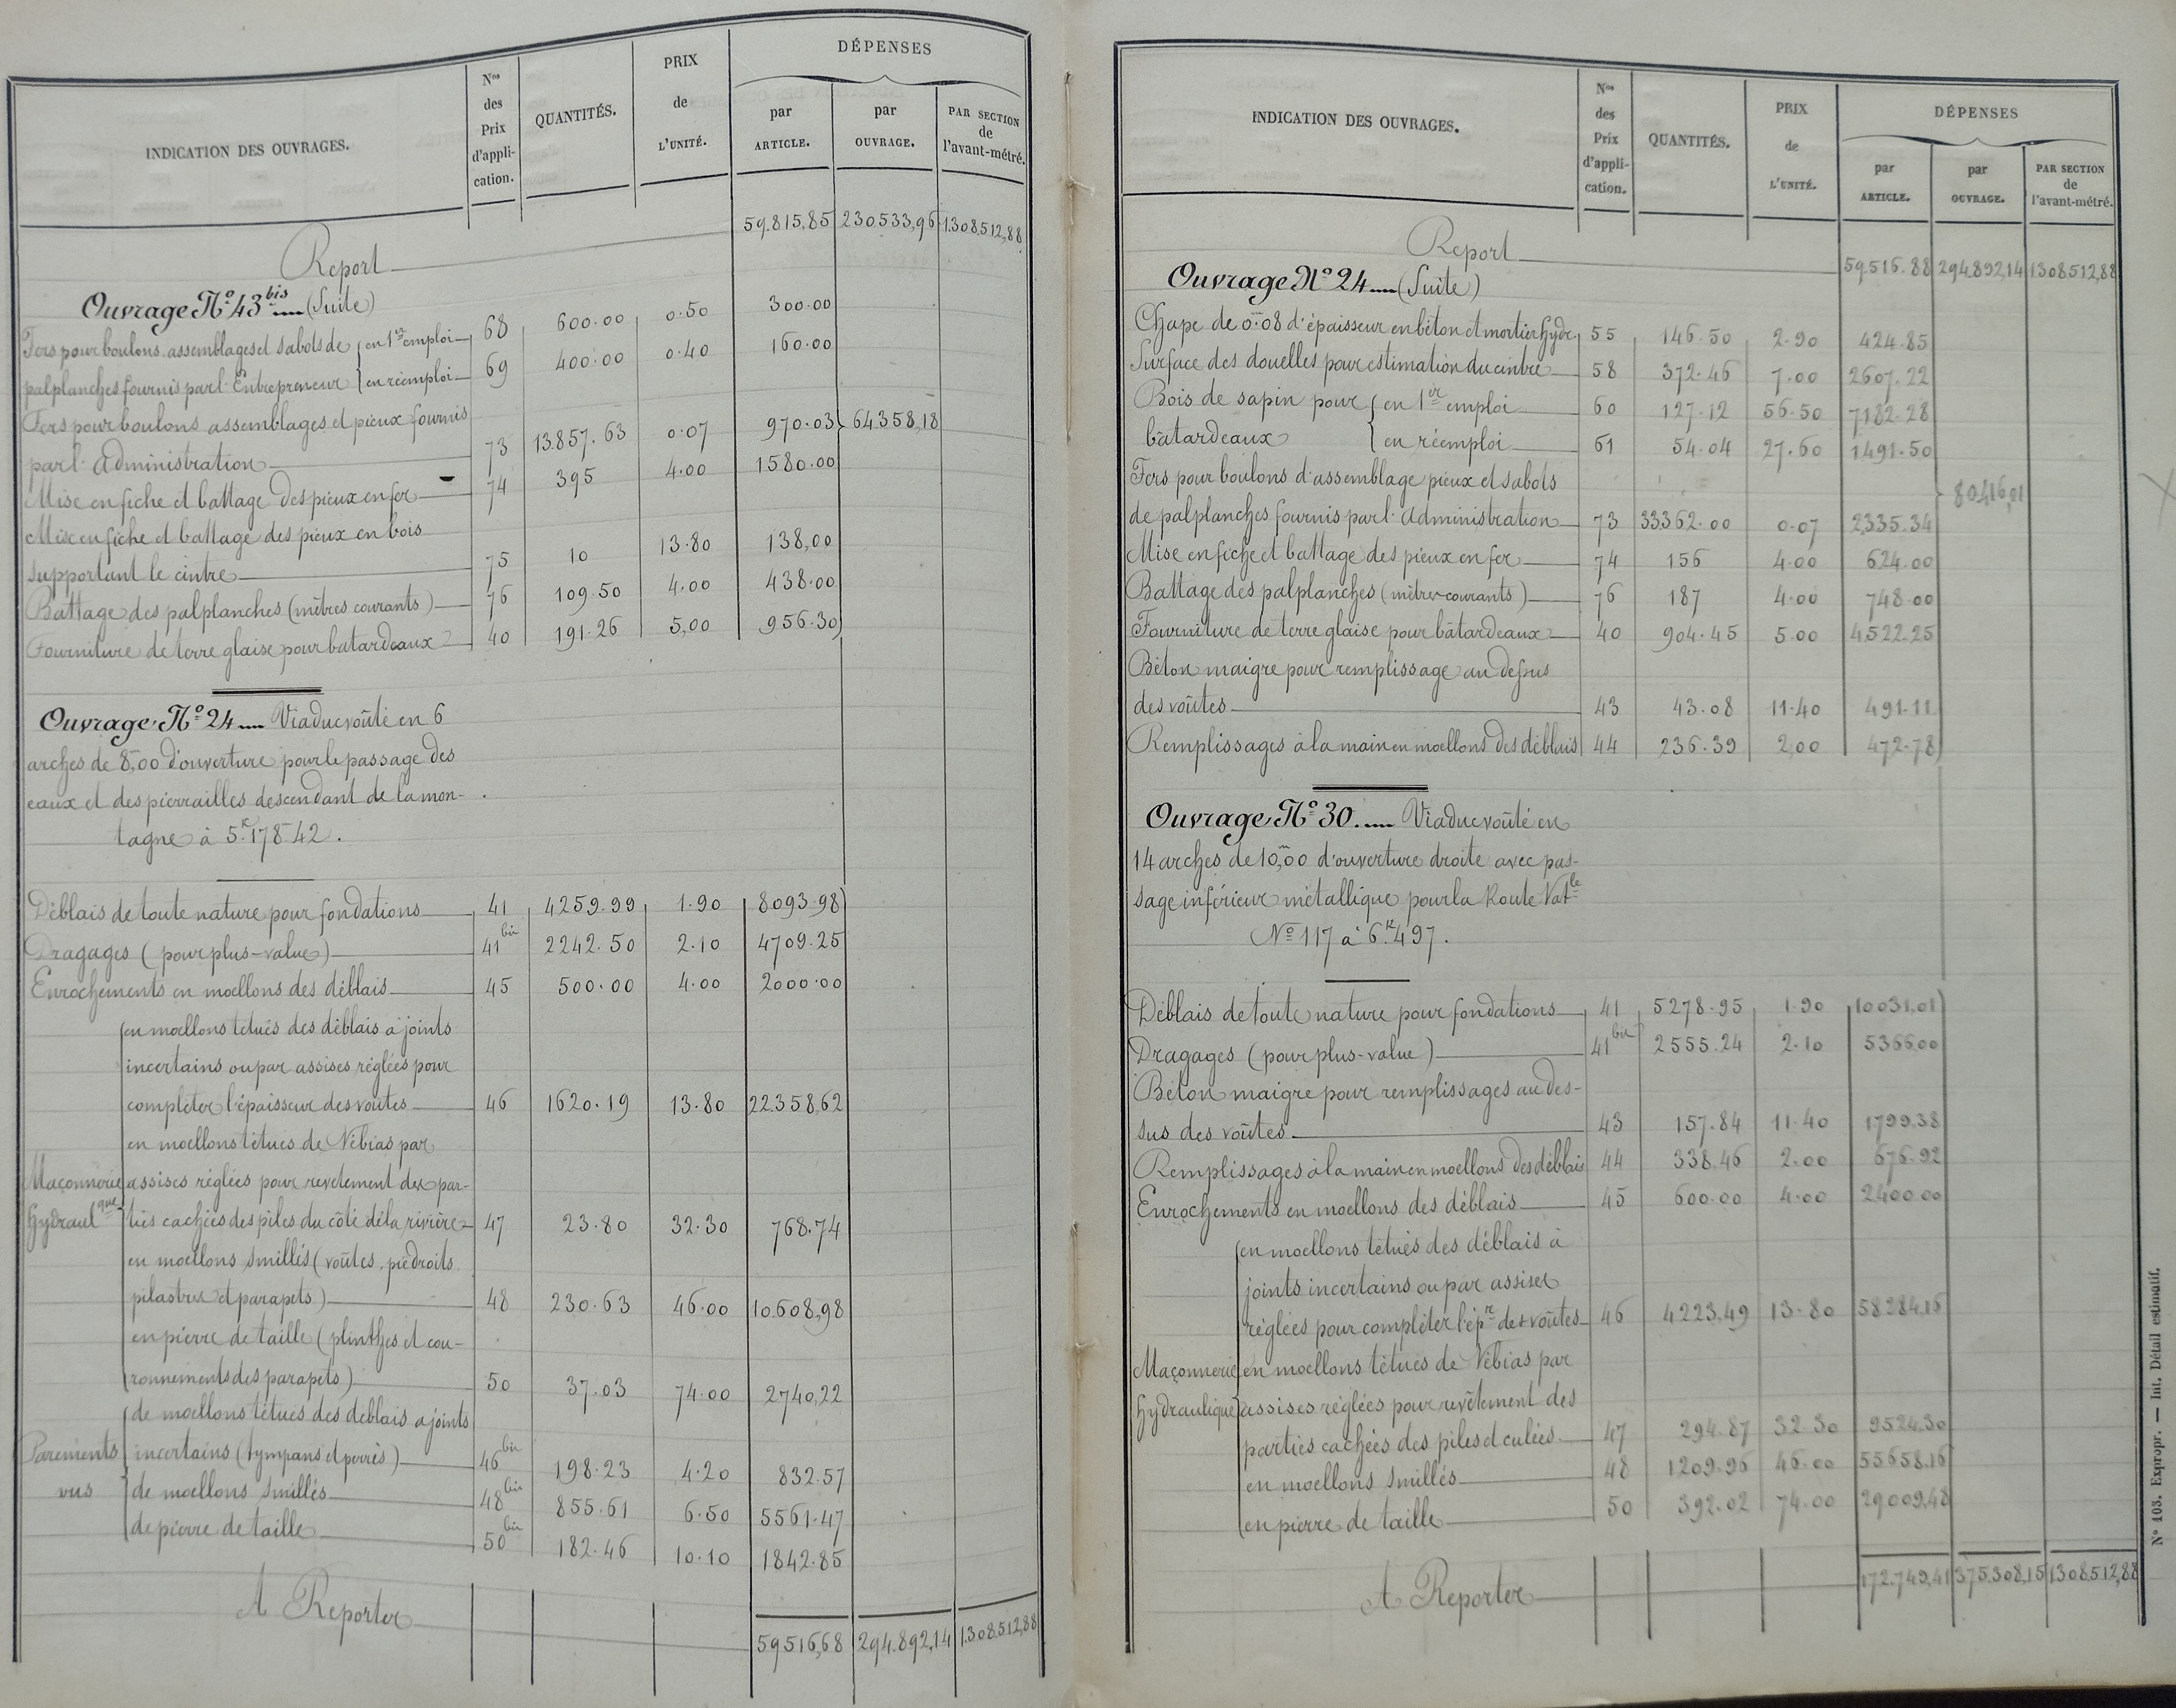 INDICATION DES OUVRAGES.
Nos des Prix d'application.
QUANTITÉS.
PRIX de L'UNITÉ.
DÉPENSES
par ARTICLE.
par OUVRAGE.
PAR SECTION de l'avant-métré.
Report 59.815,85 230533,96 1.308.512,88
Ouvrage No 43 bis (Suite)
Fers pour boulons assemblages et sabots de { en 1er emploi 68 600.00 0.50 300.00
palplanches fournis par l'Entrepreneur { en réemploi 69 400.00 0.40 160.00
Fers pour boulons assemblages et pieux fournis
par l'Administration 73 13.857.63 0.07 970.03 64.358,18
Mise en fiche et battage des pieux en fer 74 395 4.00 1580.00
Mise en fiche et battage des pieux en bois
supportant le cintre 75 10 13.80 138,00
Battage des palplanches (mètres courants) 76 109.50 4.00 438.00
Fourniture de terre glaise pour batardeaux 40 191.26 5,00 956.30
Ouvrage No 24 Viaduc voûté en 6
arches de 8m,00 d'ouverture pour le passage des
eaux et des pierrailles descendant de la mon-
tagne à 5k.178.42.
Déblais de toute nature pour fondations 41 4259.99 1.90 8093.98
Dragages (pour plus-value) 41 bis 2242.50 2.10 4709.25
Enrochements en moellons des déblais 45 500.00 4.00 2000.00
en moellons têtués des déblais à joints
incertains ou par assises réglées pour
compléter l'épaisseur des voûtes 46 1620.19 13.80 22.358,62
en moellons têtués de Nébias par
Maçonnerie assises réglées pour revêtement des par-
hydraulque ties cachées des piles du côté de la rivière 47 23.80 32.30 768.74
en moellons smillés (voûtes, piédroits
pilastres et parapets) 48 230.63 46.00 10.608,98
en pierre de taille (plinthes et cou-
ronnements des parapets) 50 37.03 74.00 2740,22
de moellons têtués des déblais à joints
Parements incertains (tympans et perrés) 46 bis 198.23 4.20 832.57
vus de moellons smillés 48 bis 855.61 6.50 5561.47
de pierre de taille 50 bis 182.46 10.10 1842.85
A Reporter 59516,68 294.892,14 1.308.512,88
INDICATION DES OUVRAGES.
Nos des Prix d'application.
QUANTITÉS.
PRIX de L'UNITÉ.
DÉPENSES
par ARTICLE.
par OUVRAGE.
PAR SECTION de l'avant-métré.
Report 59.516.88 294.892,14 1308512,88
Ouvrage No 24 (Suite)
Chape de 0m.08 d'épaisseur en béton et mortier hydr. 55 146.50 2.90 424.85
Surface des douelles pour estimation du cintre 58 372.46 7.00 2607.22
Bois de sapin pour { en 1er emploi 60 127.12 56.50 7182.28
bâtardeaux { en réemploi 61 54.04 27.60 1491.50
Fers pour boulons d'assemblage pieux et sabots
80416,01
de palplanches fournis par l'Administration 73 33362.00 0.07 2335.34
Mise en fiche et battage des pieux en fer 74 156 4.00 624.00
Battage des palplanches (mètres courants) 76 187 4.00 748.00
Fourniture de terre glaise pour bâtardeaux 40 904.45 5.00 4522.25
Béton maigre pour remplissage au dessus
des voûtes 43 43.08 11.40 491.11
Remplissages à la main en moellons des déblais 44 236.39 2,00 472.78
Ouvrage No 30. Viaduc voûté en
14 arches de 10m,00 d'ouverture droite avec pas-
sage inférieur métallique pour la Route Natle
No 117 à 6k.497.
Déblais de toute nature pour fondations 41 5278.95 1.90 10031,01
Dragages (pour plus-value) 41 bis 2555.24 2.10 5366,00
Béton maigre pour remplissages au des-
sus des voûtes. 43 157.84 11.40 1799.38
Remplissages à la main en moellons des déblais 44 338.46 2.00 676.92
Enrochements en moellons des déblais 45 600.00 4.00 2400.00
en moellons têtués des déblais à
joints incertains ou par assises
réglées pour compléter l'épr des voûtes 46 4223.49 13.80 58284.16
Maçonnerie en moellons têtués de Nébias par
hydraulique assises réglées pour revêtement des
parties cachées des piles et culées 47 294.87 32.30 9524.30
en moellons smillés 48 1209.96 46.00 55658.16
en pierre de taille 50 392.02 74.00 29009.48
A Reporter 172.749,41 375.308,15 1.308.512,88
No 103. Expropr. — Int. Détail estimatif.